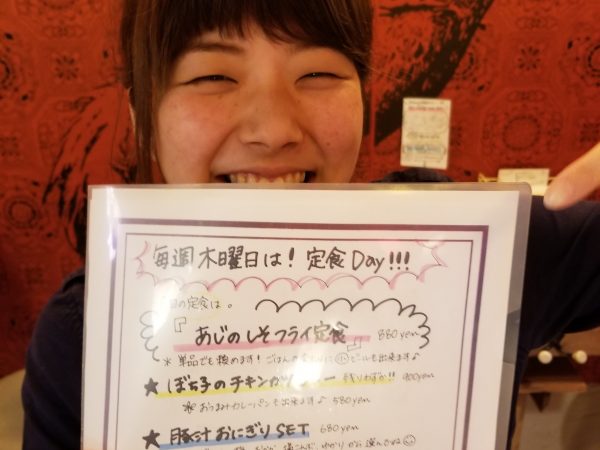 毎週木曜日は！定食Day!!!
の定食は。
『あじのしそフライ定食』 880yen
＊単品でも頼めます！ごはんの ビールも出来ます♪
★ぼち子のチキンカツ 残りわずか!! 900yen
＊おつまみカレーパンも出来ます♪ 580yen
★豚汁おにぎりSET 680yen